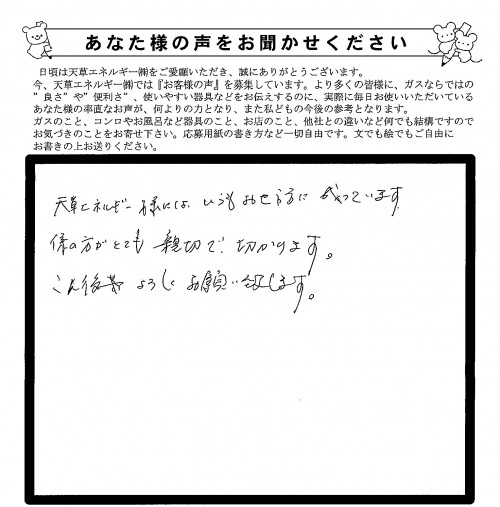 あなた様の声をお聞かせください
日頃は天草エネルギー㈱をご愛願いただき、誠にありがとうございます。
今、天草エネルギー㈱では『お客様の声』を募集しています。より多くの皆様に、ガスならではの
”良さ”や”便利さ”、使いやすい器具などをお伝えするのに、実際に毎日お使いいただいている
あなた様の率直なお声が、何よりの力となり、また私どもの今後の参考となります。
ガスのこと、コンロやお風呂など器具のこと、お店のこと、他社との違いなど何でも結構ですので
お気づきのことをお寄せ下さい。応募用紙の書き方など一切自由です。文でも絵でもご自由に
お書きの上お送りください。
天草エネルギー様には、いつもお世話に成っています
係の方がとても親切で、助かります。
こん後共よろしくお願い致します。